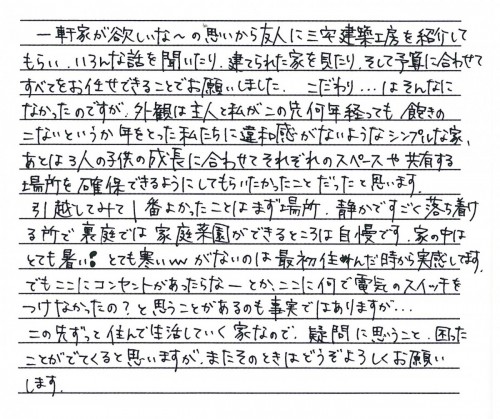 一軒家が欲しいな～の思いから友人に三宅建築工房を紹介して
もらい、いろんな話を聞いたり、建てられた家を見たり、そして予算に合わせて
すべてをお任せできることでお願いしました。 こだわり…はそんなに
なかったのですが、外観は主人と私がこの先何年経っても 飽きの
こないというか 年をとった私たちに違和感がないようなシンプルな家、
あとは3人の子供の成長に合わせてそれぞれのスペースや共有する
場所を確保できるようにしてもらいたかったことだったと思います。
引越してみて1番よかったことはまず場所。静かですごく落ち着け
る所で裏庭では家庭菜園ができるところは自慢です。家の中は
とても暑い! とても寒いwがないのは最初住んだ時から実感してます。
でもここにコンセントがあったらなーとか、ここに何で電気のスイッチを
つけなかったの?と思うことがあるのも事実ではありますが…
この先ずっと住んで生活していく家なので、疑問に思うこと、困った
ことがでてくると思いますが、またそのときはどうぞよろしくお願い
します。